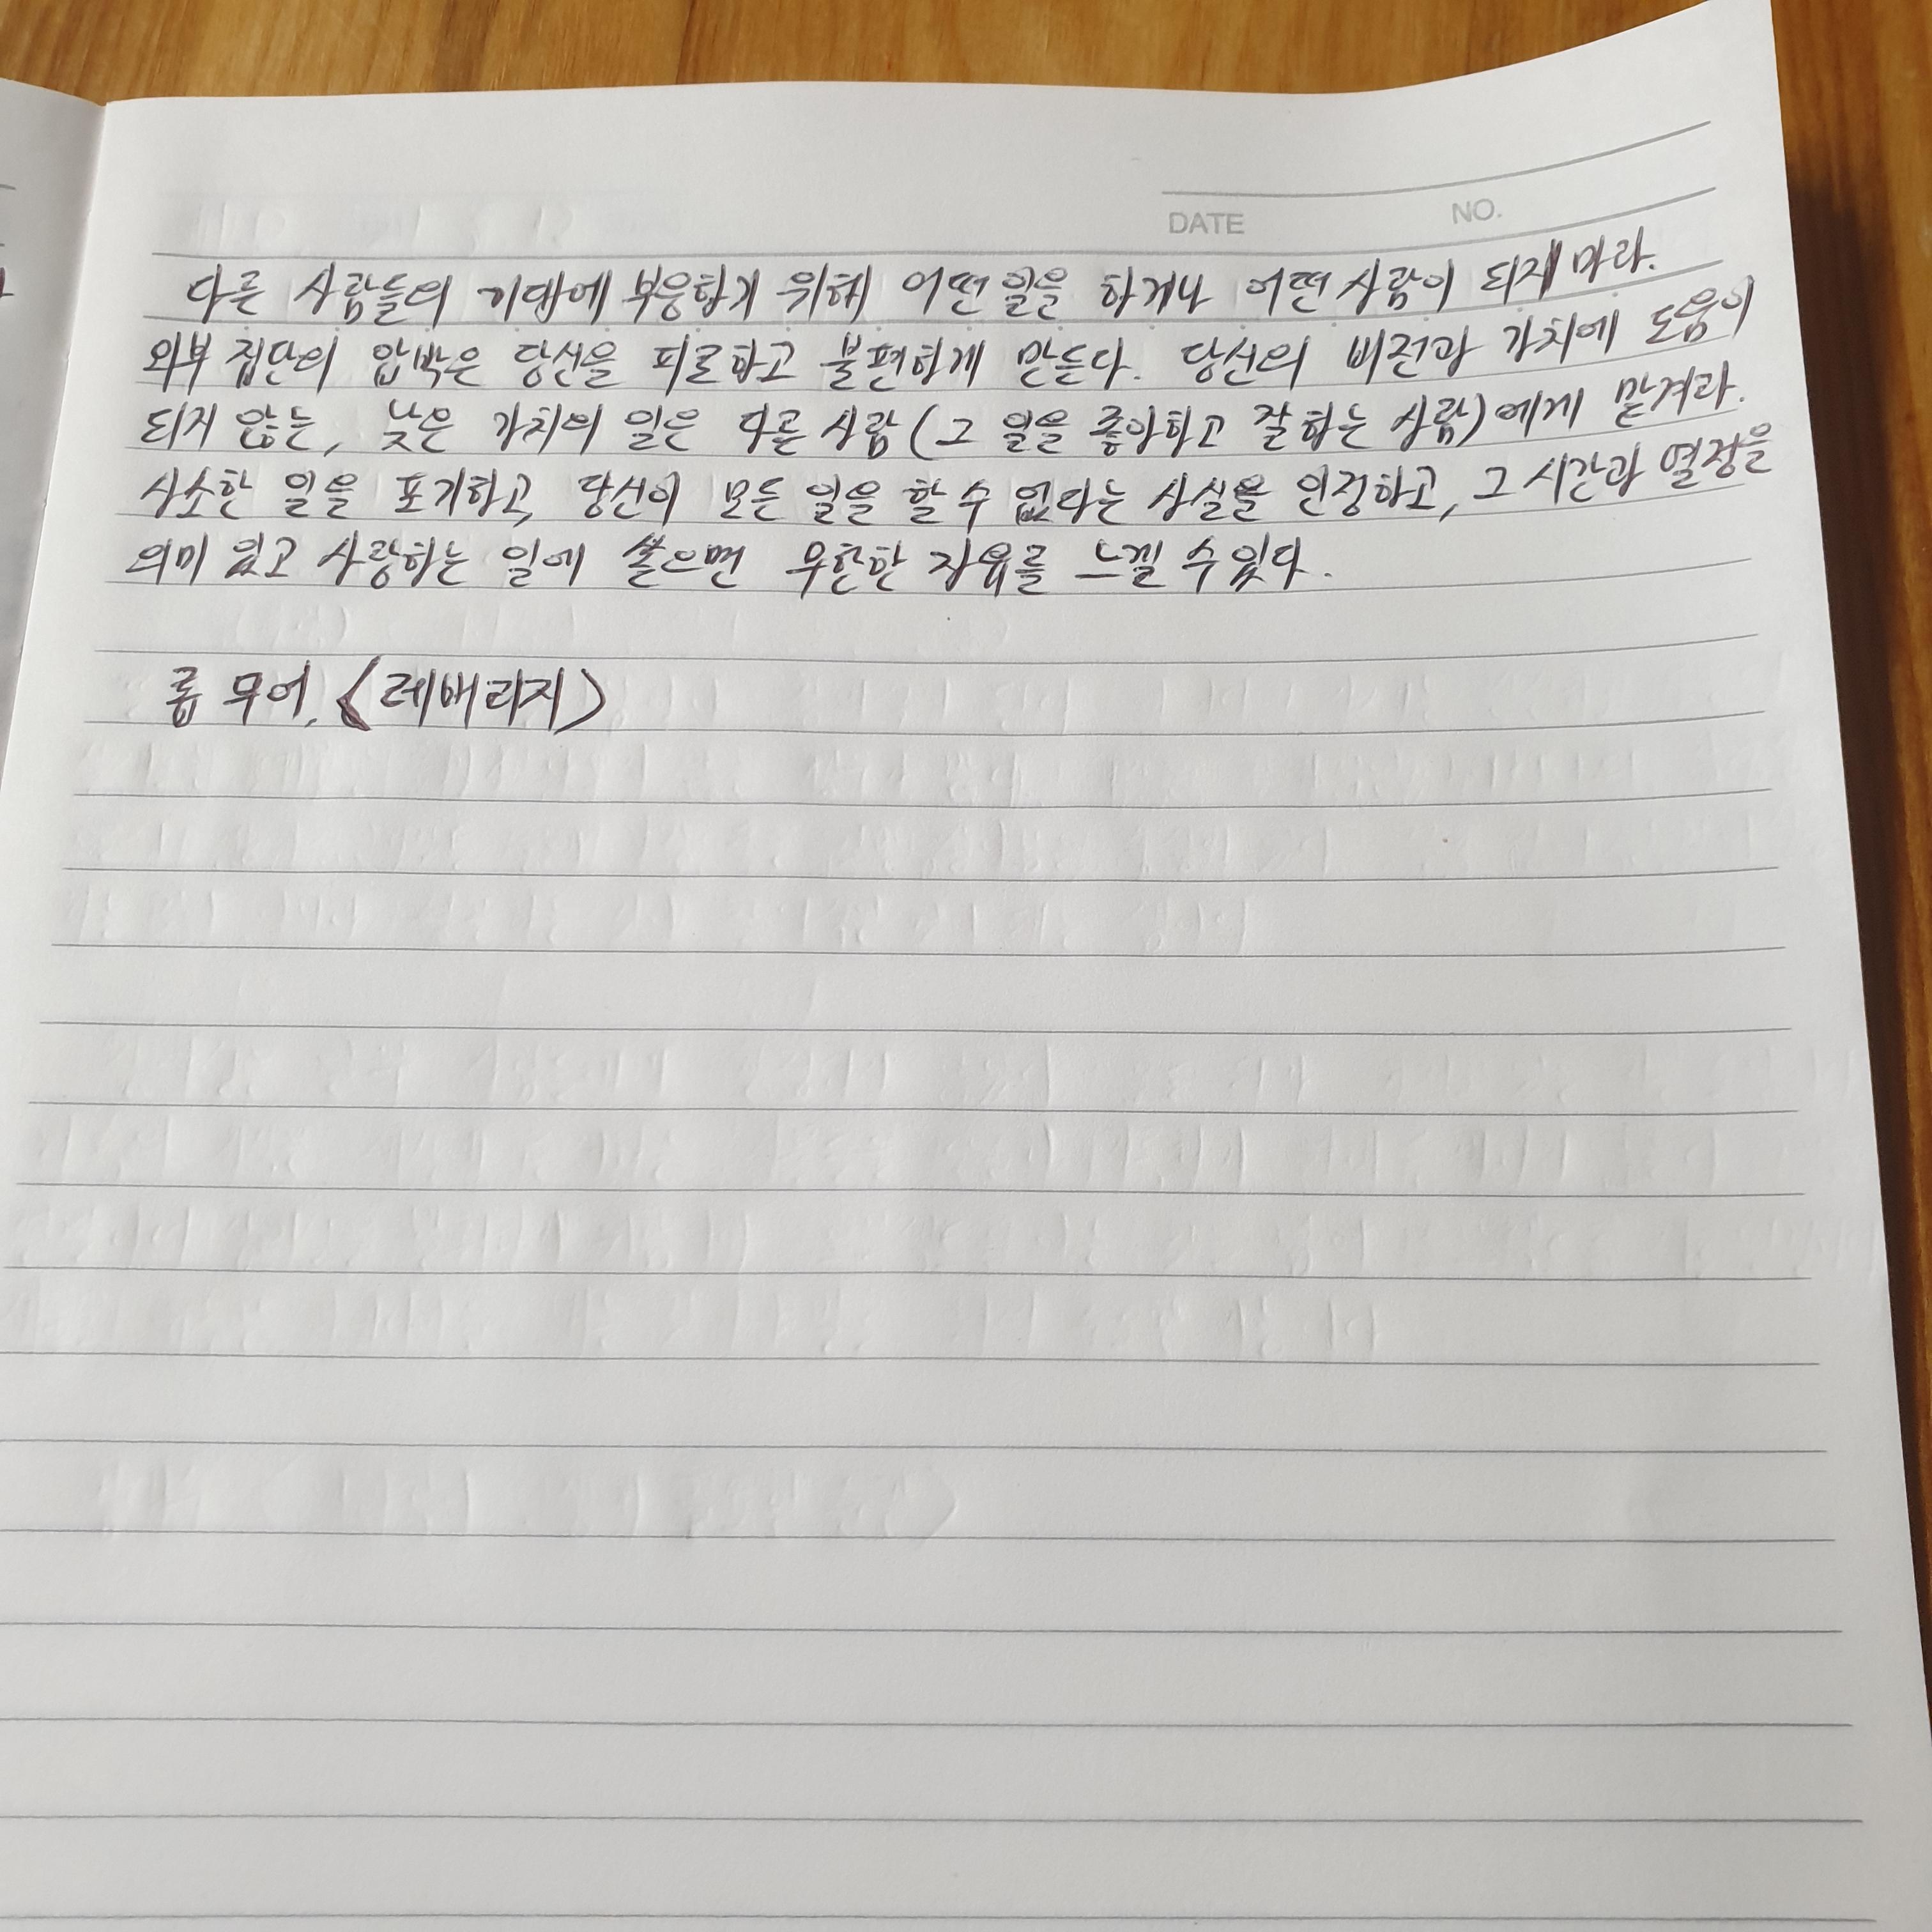 DATE NO.
다른 사람들의 기대에 부응하기 위해 어떤 일을 하거나 어떤 사람이 되지 마라.
외부 집단의 압박은 당신을 피로하고 불편하게 만든다. 당신의 비전과 가치에 도움이
되지 않는, 낮은 가치의 일은 다른 사람(그 일을 좋아하고 잘하는 사람)에게 맡겨라.
사소한 일을 포기하고, 당신이 모든 일을 할 수 없다는 사실을 인정하고, 그 시간과 열정을
의미 있고 사랑하는 일에 쏟으면 무한한 자유를 느낄 수 있다.
롭 무어, <레버리지>